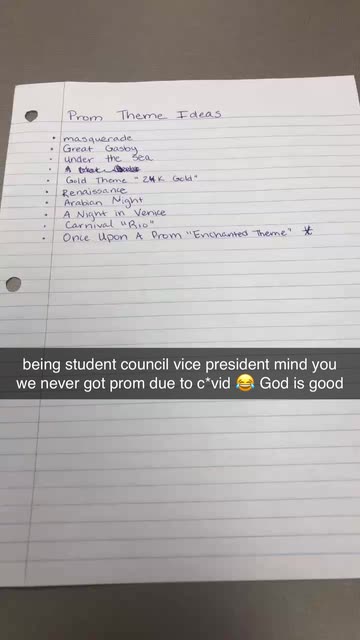 Prom Theme Ideas
• masquerade
• Great Gasby
• under the Sea
• A
• Gold Theme "24K Gold"
• Renaissance
• Arabian Night
• A Night in Venice
• Carnival "Rio"
• Once Upon A Prom "Enchanted Theme" *
being student council vice president mind you
we never got prom due to c*vid 😂 God is good